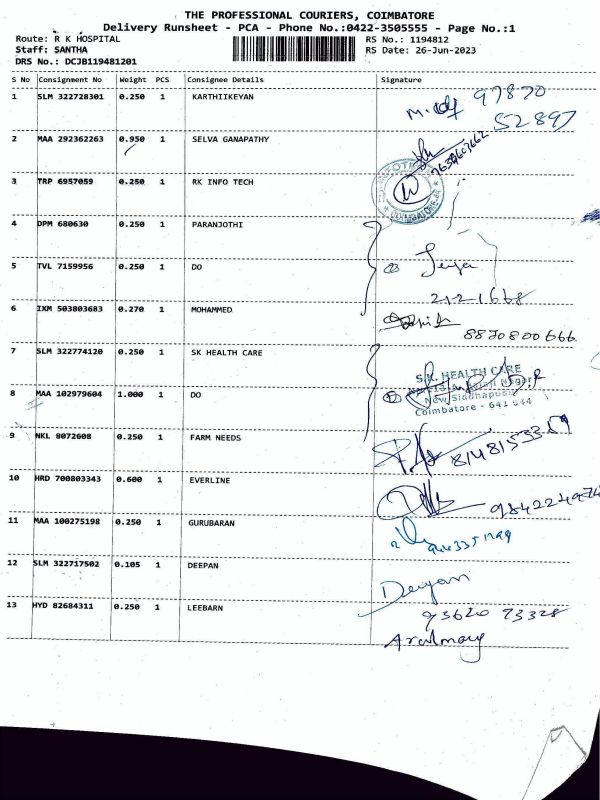 THE PROFESSIONAL COURIERS, COIMBATORE
Delivery Runsheet - PCA - Phone No.:0422-3505555 - Page No.:1
Route: R K HOSPITAL RS No.: 1194812
Staff: SANTHA RS Date: 26-Jun-2023
DRS No.: DCJB119481201
S No Consignment No Weight PCS Consignee Details Signature
1 SLM 322728301 0.250 1 KARTHIIKEYAN 97870
52897
2 MAA 292362263 0.950 1 SELVA GANAPATHY
3 TRP 6957059 0.250 1 RK INFO TECH
4 DPM 680630 0.250 1 PARANJOTHI
5 TVL 7159956 0.250 1 DO
2121668
6 IXM 503803683 0.270 1 MOHAMMED
8870800666
7 SLM 322774120 0.250 1 SK HEALTH CARE
S.K. HEALTH CARE
8 MAA 102979604 1.000 1 DO
New Siddhapudur
Coimbatore - 641 044
9 NKL 8072608 0.250 1 FARM NEEDS
10 HRD 700803343 0.600 1 EVERLINE
11 MAA 100275198 0.250 1 GURUBARAN
12 SLM 322717502 0.105 1 DEEPAN
13 HYD 82684311 0.250 1 LEEBARN
93620 73328